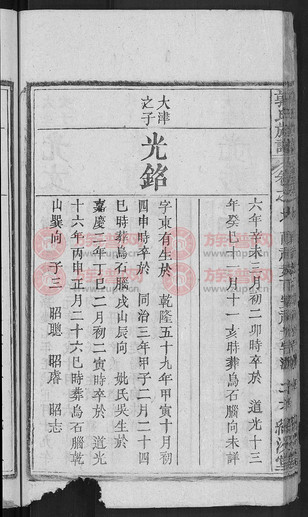 六年辛未三月初二卯時卒於 道光十三
年癸巳十二月十一亥時葬烏石腦向未詳
大津
之子
光銘
字東有生於 乾隆五十九年甲寅十月初
四申時卒於 同治三年甲子二月二十四
巳時葬烏石腦戌山辰向 妣氏吳生於
嘉慶二年丁巳二月初二寅時卒於 道光
十六年丙申正月二十六巳時葬烏石腦乾
山巽向 子三 昭聰 昭睿 昭志